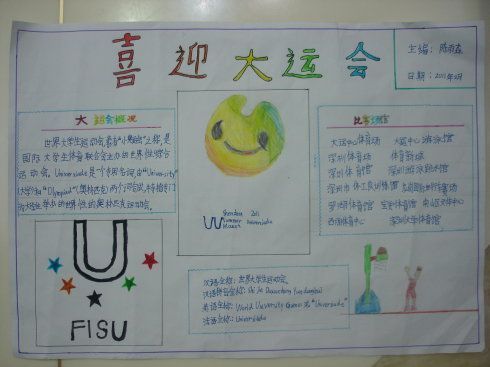 喜迎大运会
主编：陈雨森
日期：2011年3月
大运会概况
世界大学生运动会，素有"小奥运会"之称，是
国际大学生体育联合会主办的世界性综合
运动会。Universiade是一个专用名词，由"University"
大学和"Olympiad"（奥林匹克）两个词合成，特指专门
为大学生举办的世界性的奥林匹克运动会。
U
FISU
Shenzhen 2011
Summer Universiade
比赛场馆
大运中心体育场 大运中心游泳馆
深圳体育场 体育新城
深圳体育馆 深圳游泳跳水馆
深圳市体工队训练馆
罗湖体育馆 宝安体育馆
西丽体育中心 深圳大学体育馆
汉语全称：世界大学生运动会
汉语拼音全称：Shì Jiè Dàxuéshēng Yùndònghuì
英语全称：World University Games 或"Universiade"
法语全称：Universiade